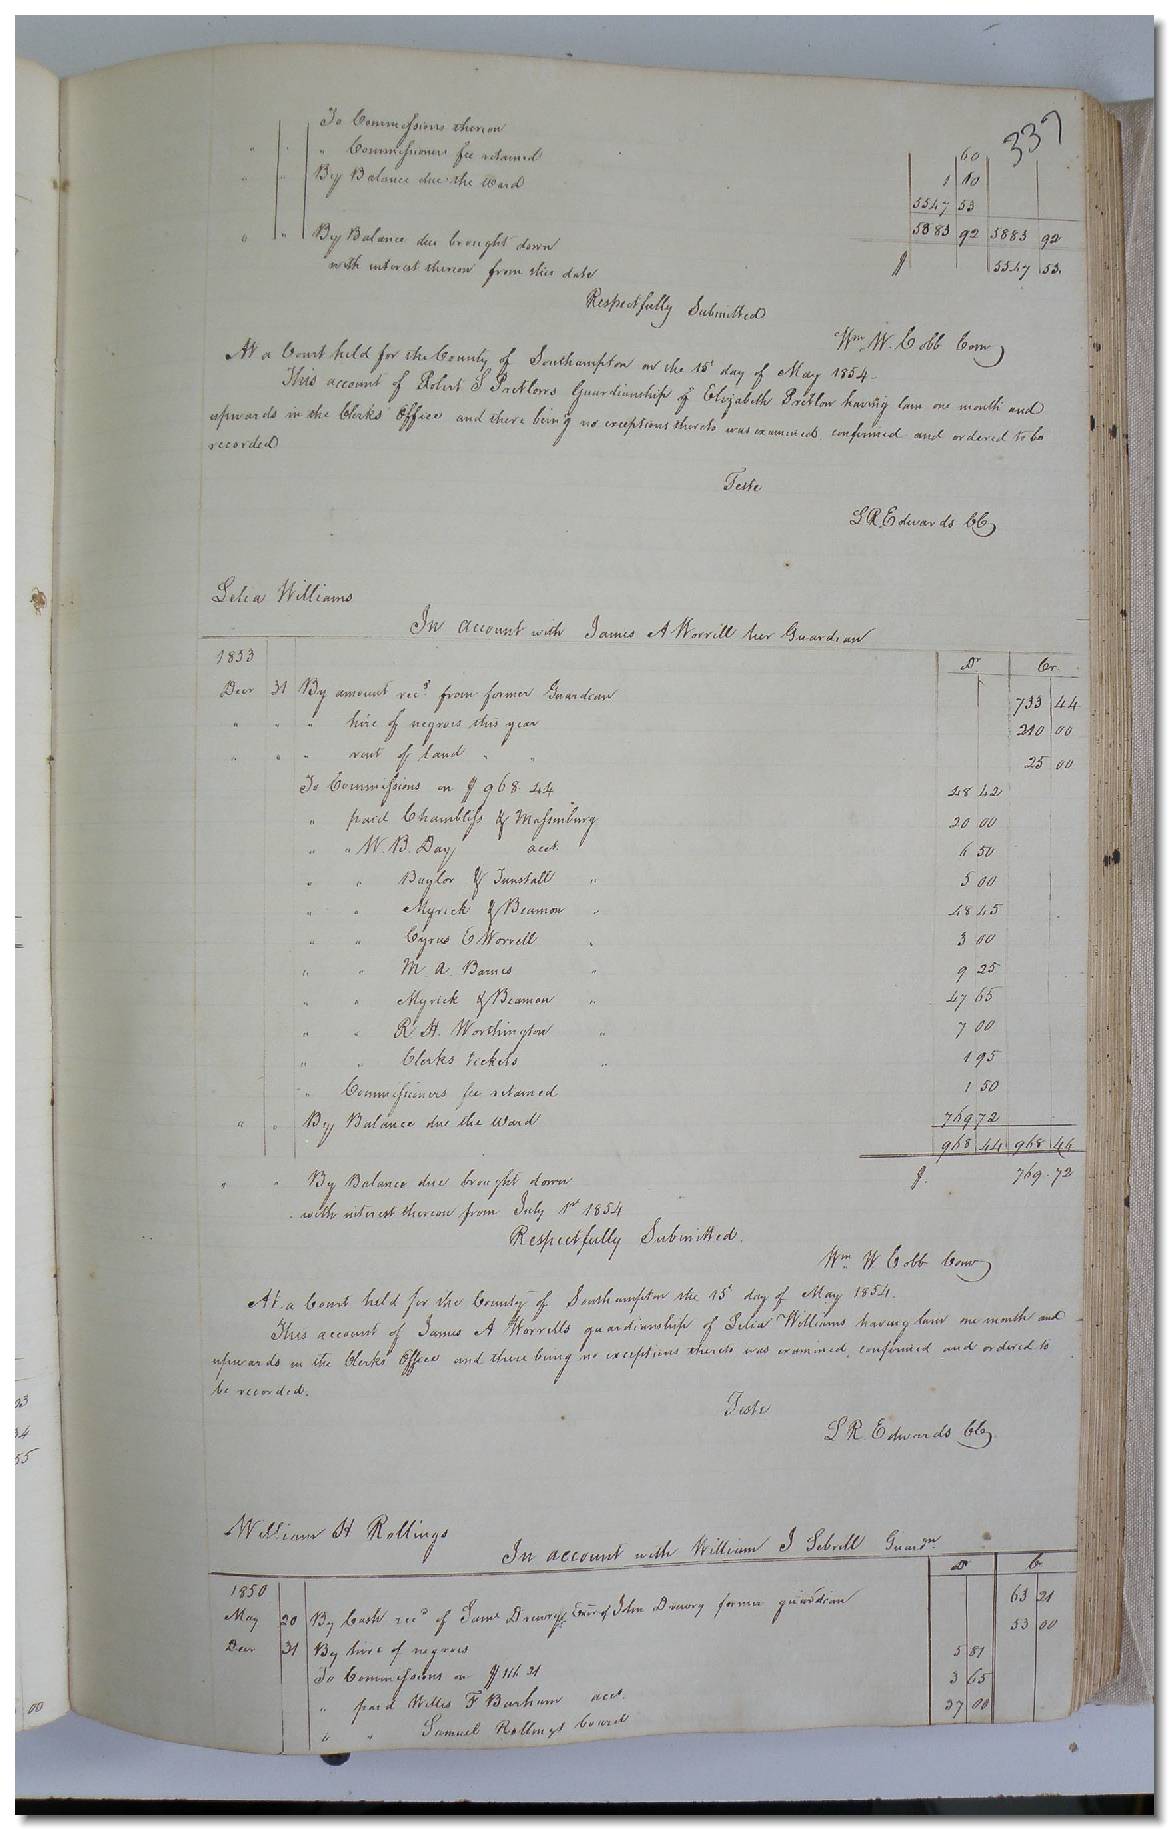 337
To Commissions thereon 60
" " " Commissioners fee retained 1 10
" " By Balance due the Ward 5547 53
5883 92 5883 92
" " By Balance due brought down $ 5547 53
with interest thereon from this date
Respectfully Submitted
Wm W. Cobb Com
At a Court held for the County of Southampton on the 15 day of May 1854.
This account of Robert S Pretlows Guardianship of Elizabeth Pretlow having lain one month and
upwards in the Clerks Office and there being no exceptions thereto was examined confirmed and ordered to be
recorded
Teste
L R Edwards CC
Lelia Williams
In account with James A Worrill her Guardian
1853 Dr Cr.
Decr 31 By amount recd from former Guardian 733 44
" " " hire of negroes this year 210 00
" " " rent of land " " 25 00
To Commissions on $ 968.44 48 42
" paid Chambliss & Massenburg 20 00
" " W. B. Day acct. 6 50
" " Baylor & Tunstall " 5 00
" " Myrick & Beamon " 48 45
" " Cyrus C Worrell " 3 00
" " M A. Barnes " 9 25
" " Myrick & Beamon " 47 65
" " R. H. Worthington " 7 00
" " Clerks tickets " 1 95
" Commissioners fee retained 1 50
" " By Balance due the Ward 769 72
968 44 968 44
" " By Balance due brought down $. 769.72
with interest thereon from July 1st 1854
Respectfully Submitted.
Wm W Cobb Com
At a Court held for the County of Southampton the 15 day of May 1854.
This account of James A Worrells guardianship of Lelia Williams having lain one month and
upwards in the Clerks Office and there being no exceptions thereto was examined, confirmed and ordered to
be recorded.
Teste
L R. Edwards CC
William H Rollings
In account with William J Sebrell Guardn
1850 Dr Cr
May 20 By Cash recd of Jams Drewry Exor of John Drewry former guardian 63 21
Decr 31 By hire of negroes 53 00
To Commissions on $116 21 5 81
" paid Willis F Barham acct. 3 65
" " Samuel Rollings board 37 00
33
34
55
00